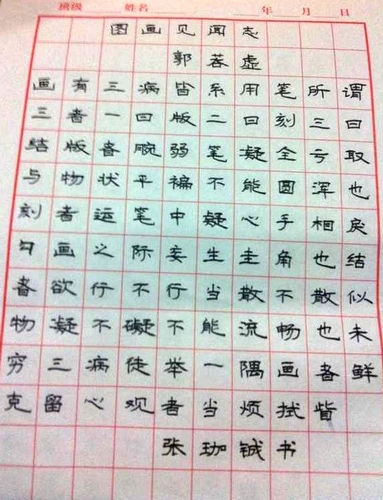 班级 姓名 年 月 日
图画见闻志
郭若虚
画有三病皆系用笔所谓
三者一曰版二曰刻三曰
结版者腕弱笔凝全亏取
与物状平褊不能圆浑也
刻者运笔中疑心手相戾
勾画之际妄生圭角也结
者欲行不行当散不散似
物凝不礙不能流畅也未
穷三病徒举一隅画者鲜
克留心观者当烦拭眥
张珈铖书